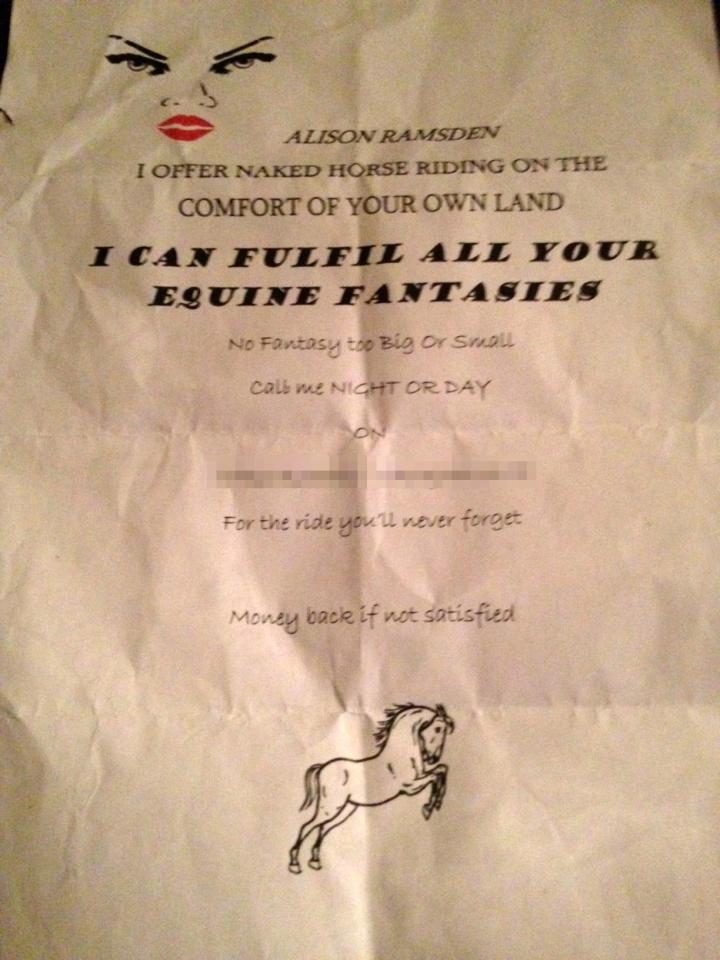 ALISON RAMSDEN
I OFFER NAKED HORSE RIDING ON THE
COMFORT OF YOUR OWN LAND
I CAN FULFIL ALL YOUR
EQUINE FANTASIES
No Fantasy too Big Or Small
Call me NIGHT OR DAY
ON
For the ride you'll never forget
Money back if not satisfied